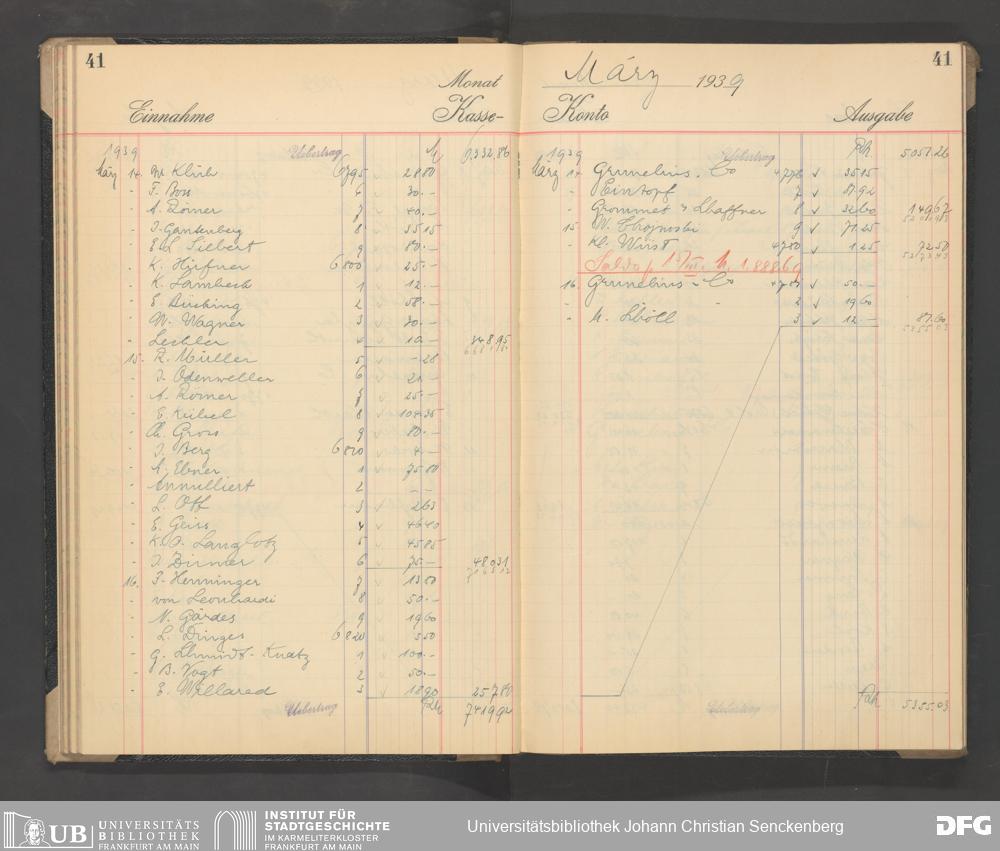 41
Monat
Einnahme Kasse-
1939 Uebertrag 6,332.86
März 14. 6795 28.80
- F. Boss 6 30.-
- A. Römer 7 40.-
- J. Gantenberg 8 35.15
- E. L. Siebert 9 80.-
- K. Hüfner 6800 25.-
- K. Lambech 1 12.-
- E. Büching 2 58.-
- W. Wagner 3 30.-
- Lechler 4 10.- 348.95
15. R. Müller 5 -.28
- J. Odenweller 6 21.-
- A. Römer 7 25.-
- E. Kübel 8 104.35
- Ch. Gross 9 80.-
- J. Berg 6810 4.-
- A. Ebner 1 75.80
- Annulliert 2 --
- L. Ott 3 2.63
- E. Geiss 4 46.40
- K. A. Langlotz 5 45.85
- J. Birmer 6 75.- 480.31
16. P. Henninger 7 13.80
- von Leonhardi 8 50.-
- N. Gärdes 9 19.60
- L. Dinges 6820 3.50
- G. Schmidt-Knatz 1 100.-
- B. Vogt 2 50.-
- E. Willared 3 18.90 257.80
Uebertrag 7419.92
41
März 1939
Konto Ausgabe
1939 Uebertrag 5051.26
März 14 Grunelius & Co 4776 35.15
- Eintopf 7 81.92
- Grommet & Schaffner 8 32.60 149.67
15. W. 9 71.25
- Kl. Wüst 4780 1.25 72.50
Saldo p. 1.888.69
16 Grunelius & Co 4781 50.-
- - 2 19.60
- M. Schöll 3 12.- 81.60
Uebertrag 5355.03
UB UNIVERSITÄTS BIBLIOTHEK FRANKFURT AM MAIN
INSTITUT FÜR STADTGESCHICHTE IM KARMELITERKLOSTER FRANKFURT AM MAIN
Universitätsbibliothek Johann Christian Senckenberg
DFG